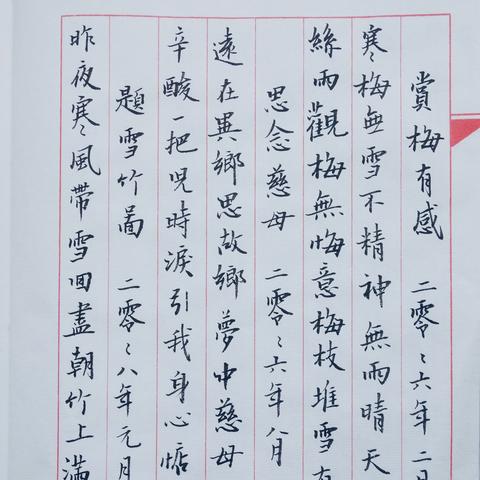 賞梅有感 二零〻六年二月
寒〻梅無雪不精神無雨晴天
絲雨觀梅無悔意梅枝堆雪有
思念慈母 二零〻六年八月
遠在異鄉思故鄉夢中慈母
辛酸一把児時淚引我身心惦
題雪竹圖 二零〻八年元月
昨夜寒〻風帶雪回盡朝竹上滿